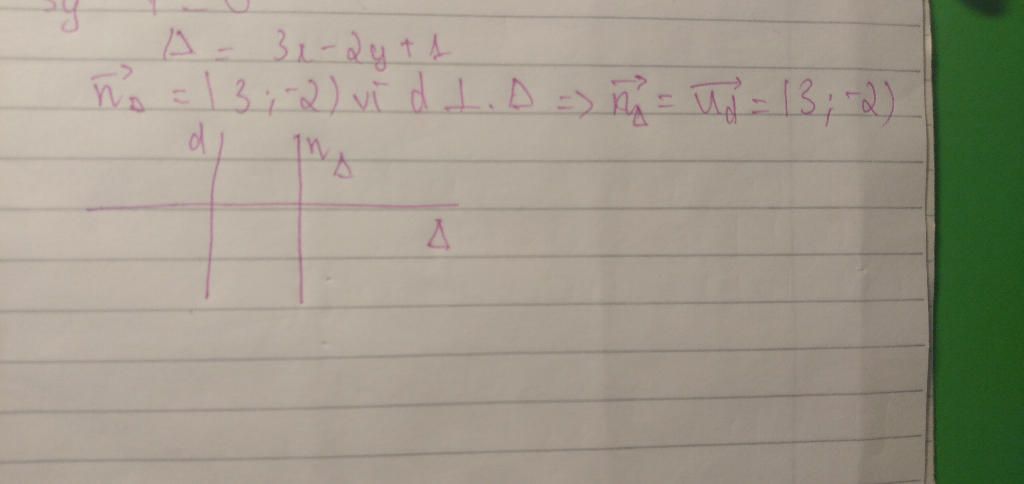 Δ = 3x - 2y + 1
n⃗Δ = (3; -2) vì d ⊥. Δ => n⃗Δ = u⃗d = (3; -2)
d nΔ
Δ